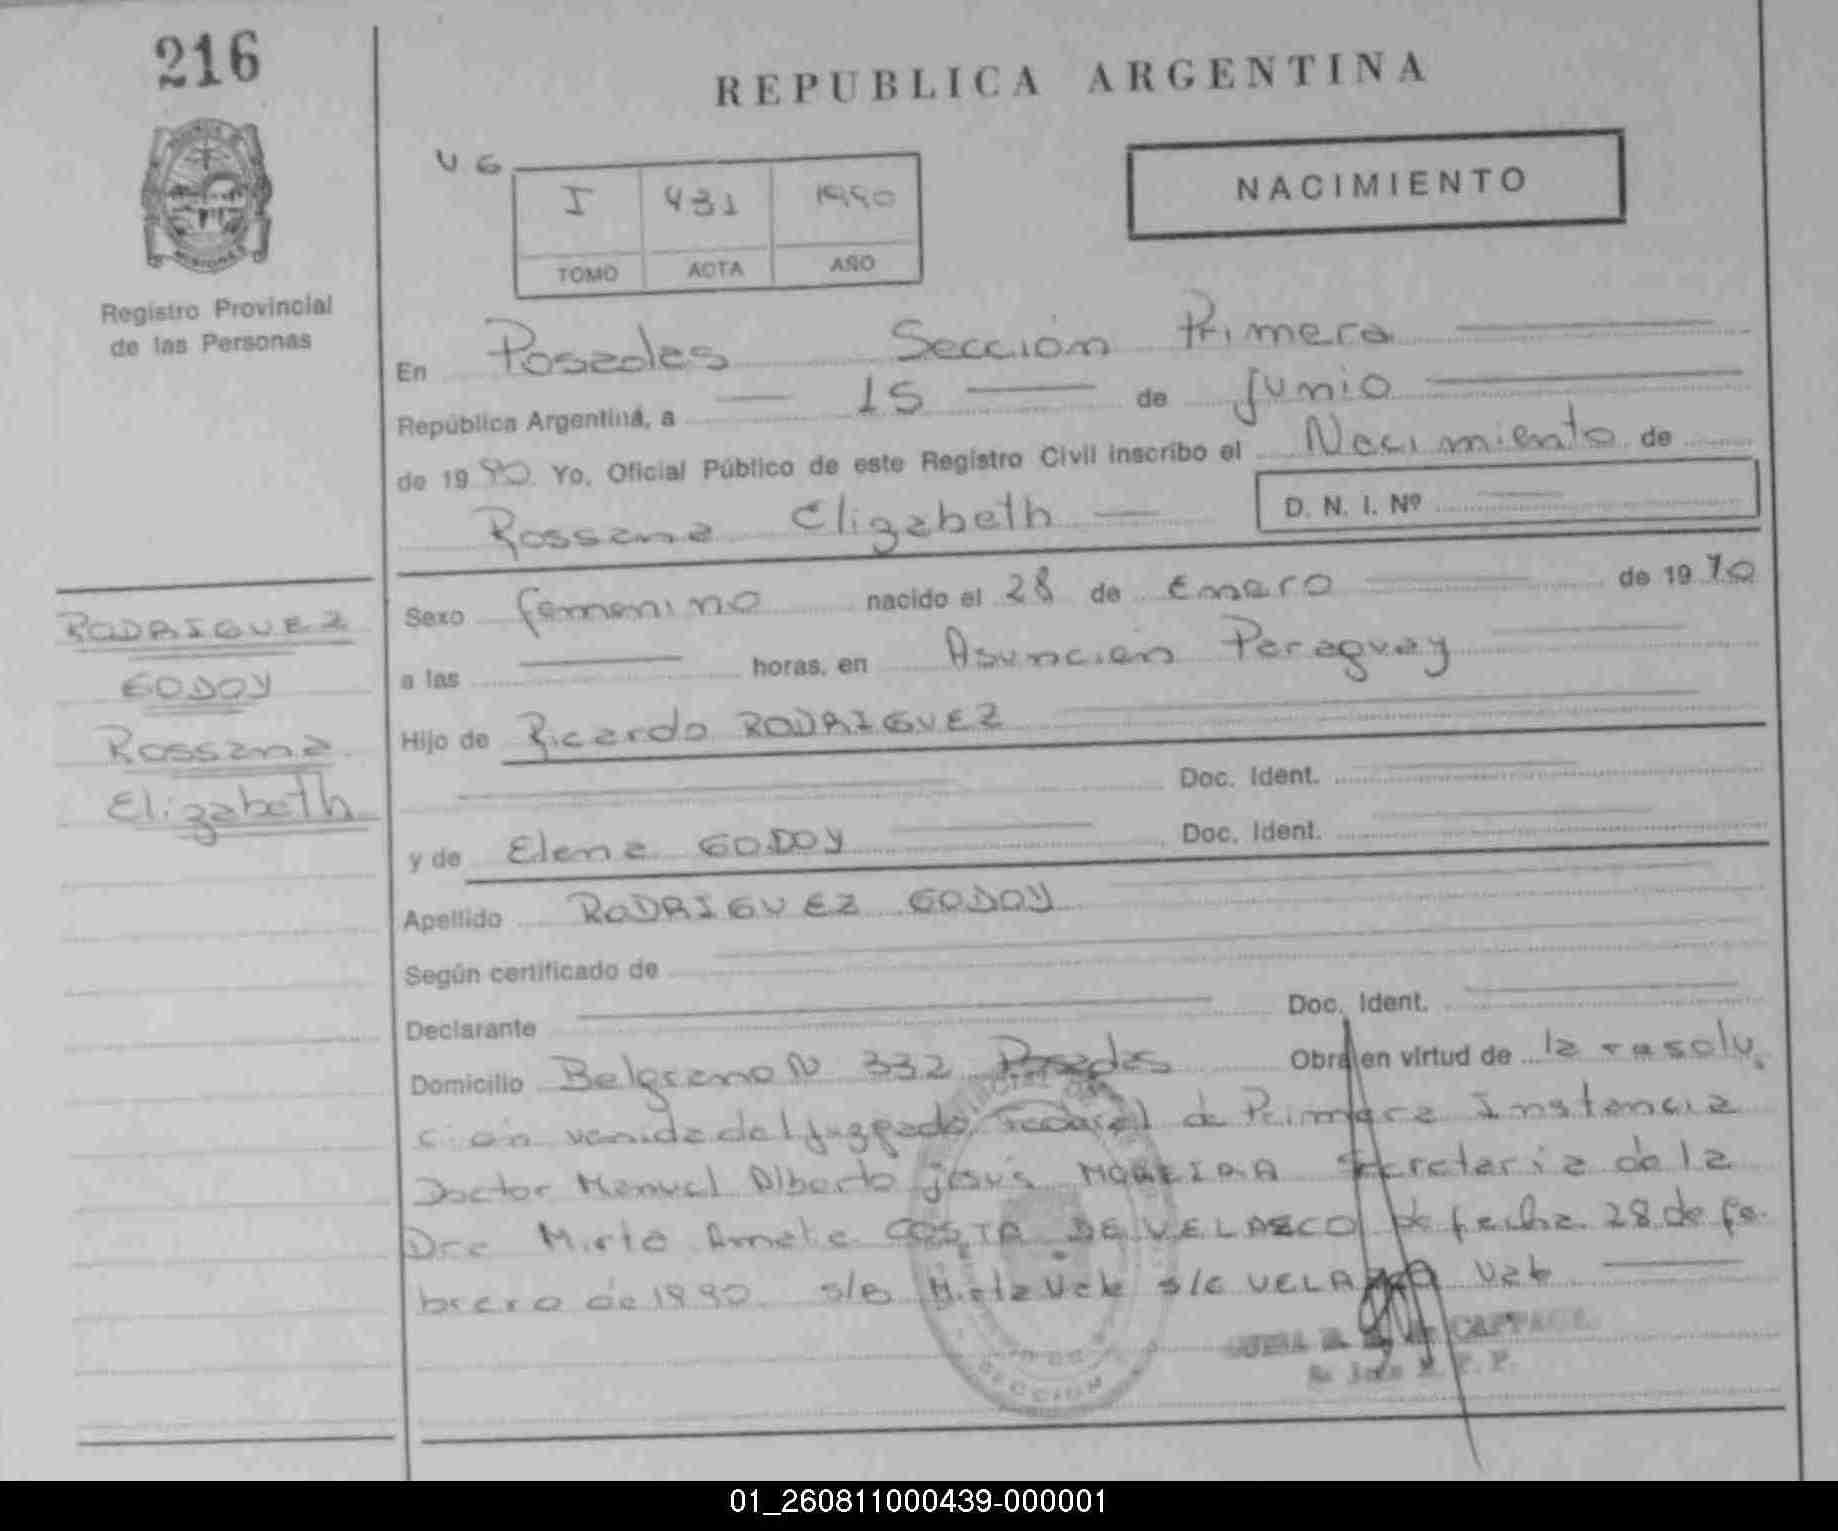 216
REPUBLICA ARGENTINA
V 6
I 431 1990
TOMO ACTA AÑO
NACIMIENTO
Registro Provincial
de las Personas
En Posadas Sección Primera
República Argentina, a 15 de junio
de 1990 Yo, Oficial Público de este Registro Civil inscribo el Nacimiento de
Rossana Elizabeth
D. N. I. Nº
RODRIGUEZ
GODOY
Rossana
Elizabeth
Sexo femenino nacido el 28 de Enero de 1970
a las horas, en Asunción Paraguay
Hijo de Ricardo RODRIGUEZ
Doc. Ident.
y de Elena GODOY Doc. Ident.
Apellido RODRIGUEZ GODOY
Según certificado de
Declarante Doc. Ident.
Domicilio Belgrano N 332 Posadas Obra en virtud de la resolu.
ción venida del juzgado Federal de Primera Instancia
Doctor Manuel Alberto jesús MOREIRA Secretaria de la
Dra Mirta COSTA DE VELAZCO de fecha 28 de fe.
brero de 1990. s/e s/c Vale
SECCION
01_260811000439-000001